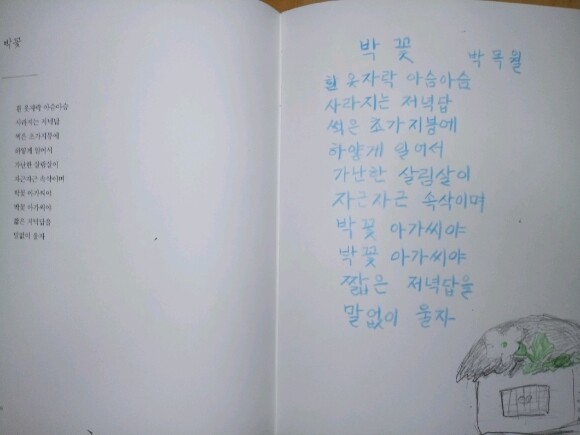 박꽃
흰 옷자락 아슴아슴
사라지는 저녁답
썩은 초가지붕에
하얗게 일어서
가난한 살림살이
자근자근 속삭이며
박꽃 아가씨야
박꽃 아가씨야
짧은 저녁답을
말없이 울자
박꽃
박목월
흰 옷자락 아슴아슴
사라지는 저녁답
썩은 초가지붕에
하얗게 일어서
가난한 살림살이
자근자근 속삭이며
박꽃 아가씨야
박꽃 아가씨야
짧은 저녁답을
말없이 울자